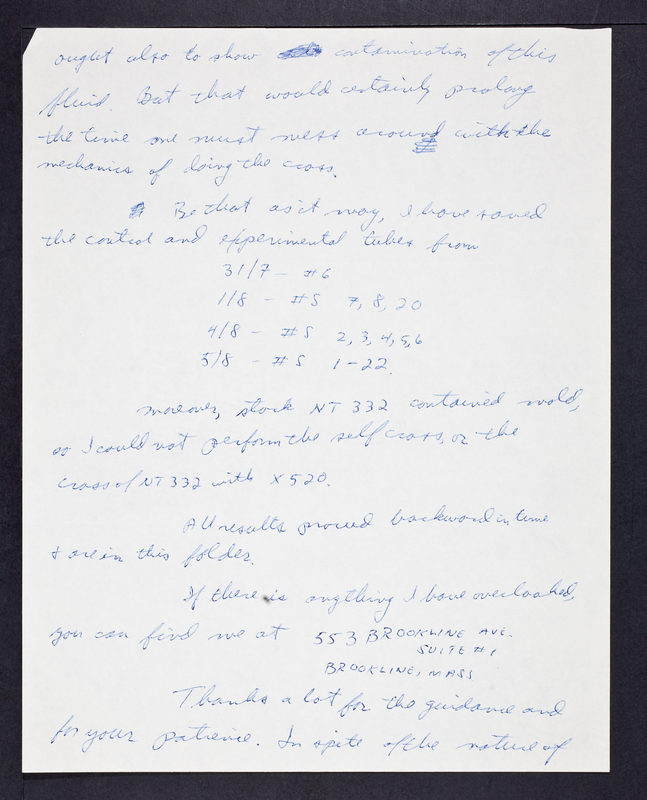 ought also to show contamination of this
fluid. But that would certainly prolong
the time one must mess around with the
mechanics of doing the cross.
Be that as it may, I have saved
the control and experimental tubes from
31/7 - #6
1/8 - #S 7, 8, 20
4/8 - #S 2, 3, 4, 5, 6
5/8 - #S 1-22.
Moreover, stock NT 332 contained mold,
so I could not perform the self cross, or the
cross of NT 332 with X520.
All results proceed backward in time
& are in this folder.
If there is anything I have overlooked,
you can find me at 553 BROOKLINE AVE.
SUITE #1
BROOKLINE, MASS
Thanks a lot for the guidance and
for your patience. In spite of the nature of